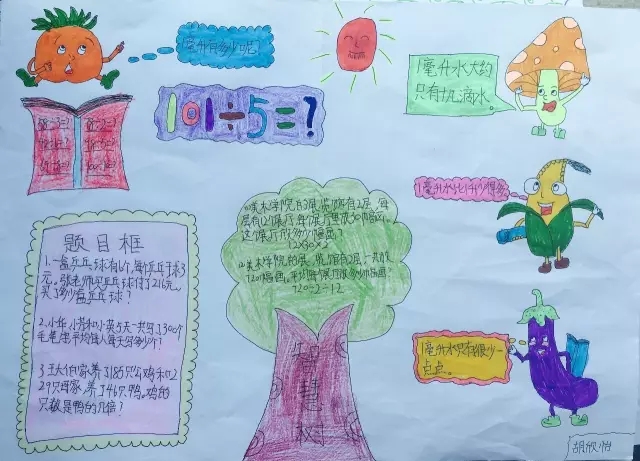 1毫升有多少呢
101÷5=?
1毫升水大约
只有十几滴水。
1毫升水比1升少得多
1毫升水只有很少一
点点。
题目框
1.一盒乒乓球有6个,每个乒乓球3
元。张老师买乒乓球付了216元,
买了多少盒乒乓球?
2.小华、小芳和小英5天一共写1300个
毛笔字,平均每人每天写多少个?
3.王大伯家养了185只公鸡和2
29只母鸡,养了46只鸭。鸡的
只数是鸭的几倍?
1.美术学院的展览馆有2层,每
层有12个展厅,每个展厅里放30幅画,
这个展厅放多少幅画?
12×30×2
2.美术学院的展览馆有2层,一共放
720幅画,平均每个展厅放多少幅画?
720÷2÷12
智
慧
树
胡欣怡